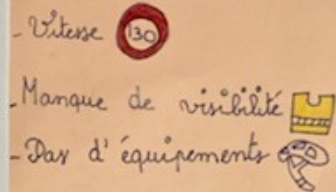 - Vitesse 130
- Manque de visibilité
- Pas d'équipements